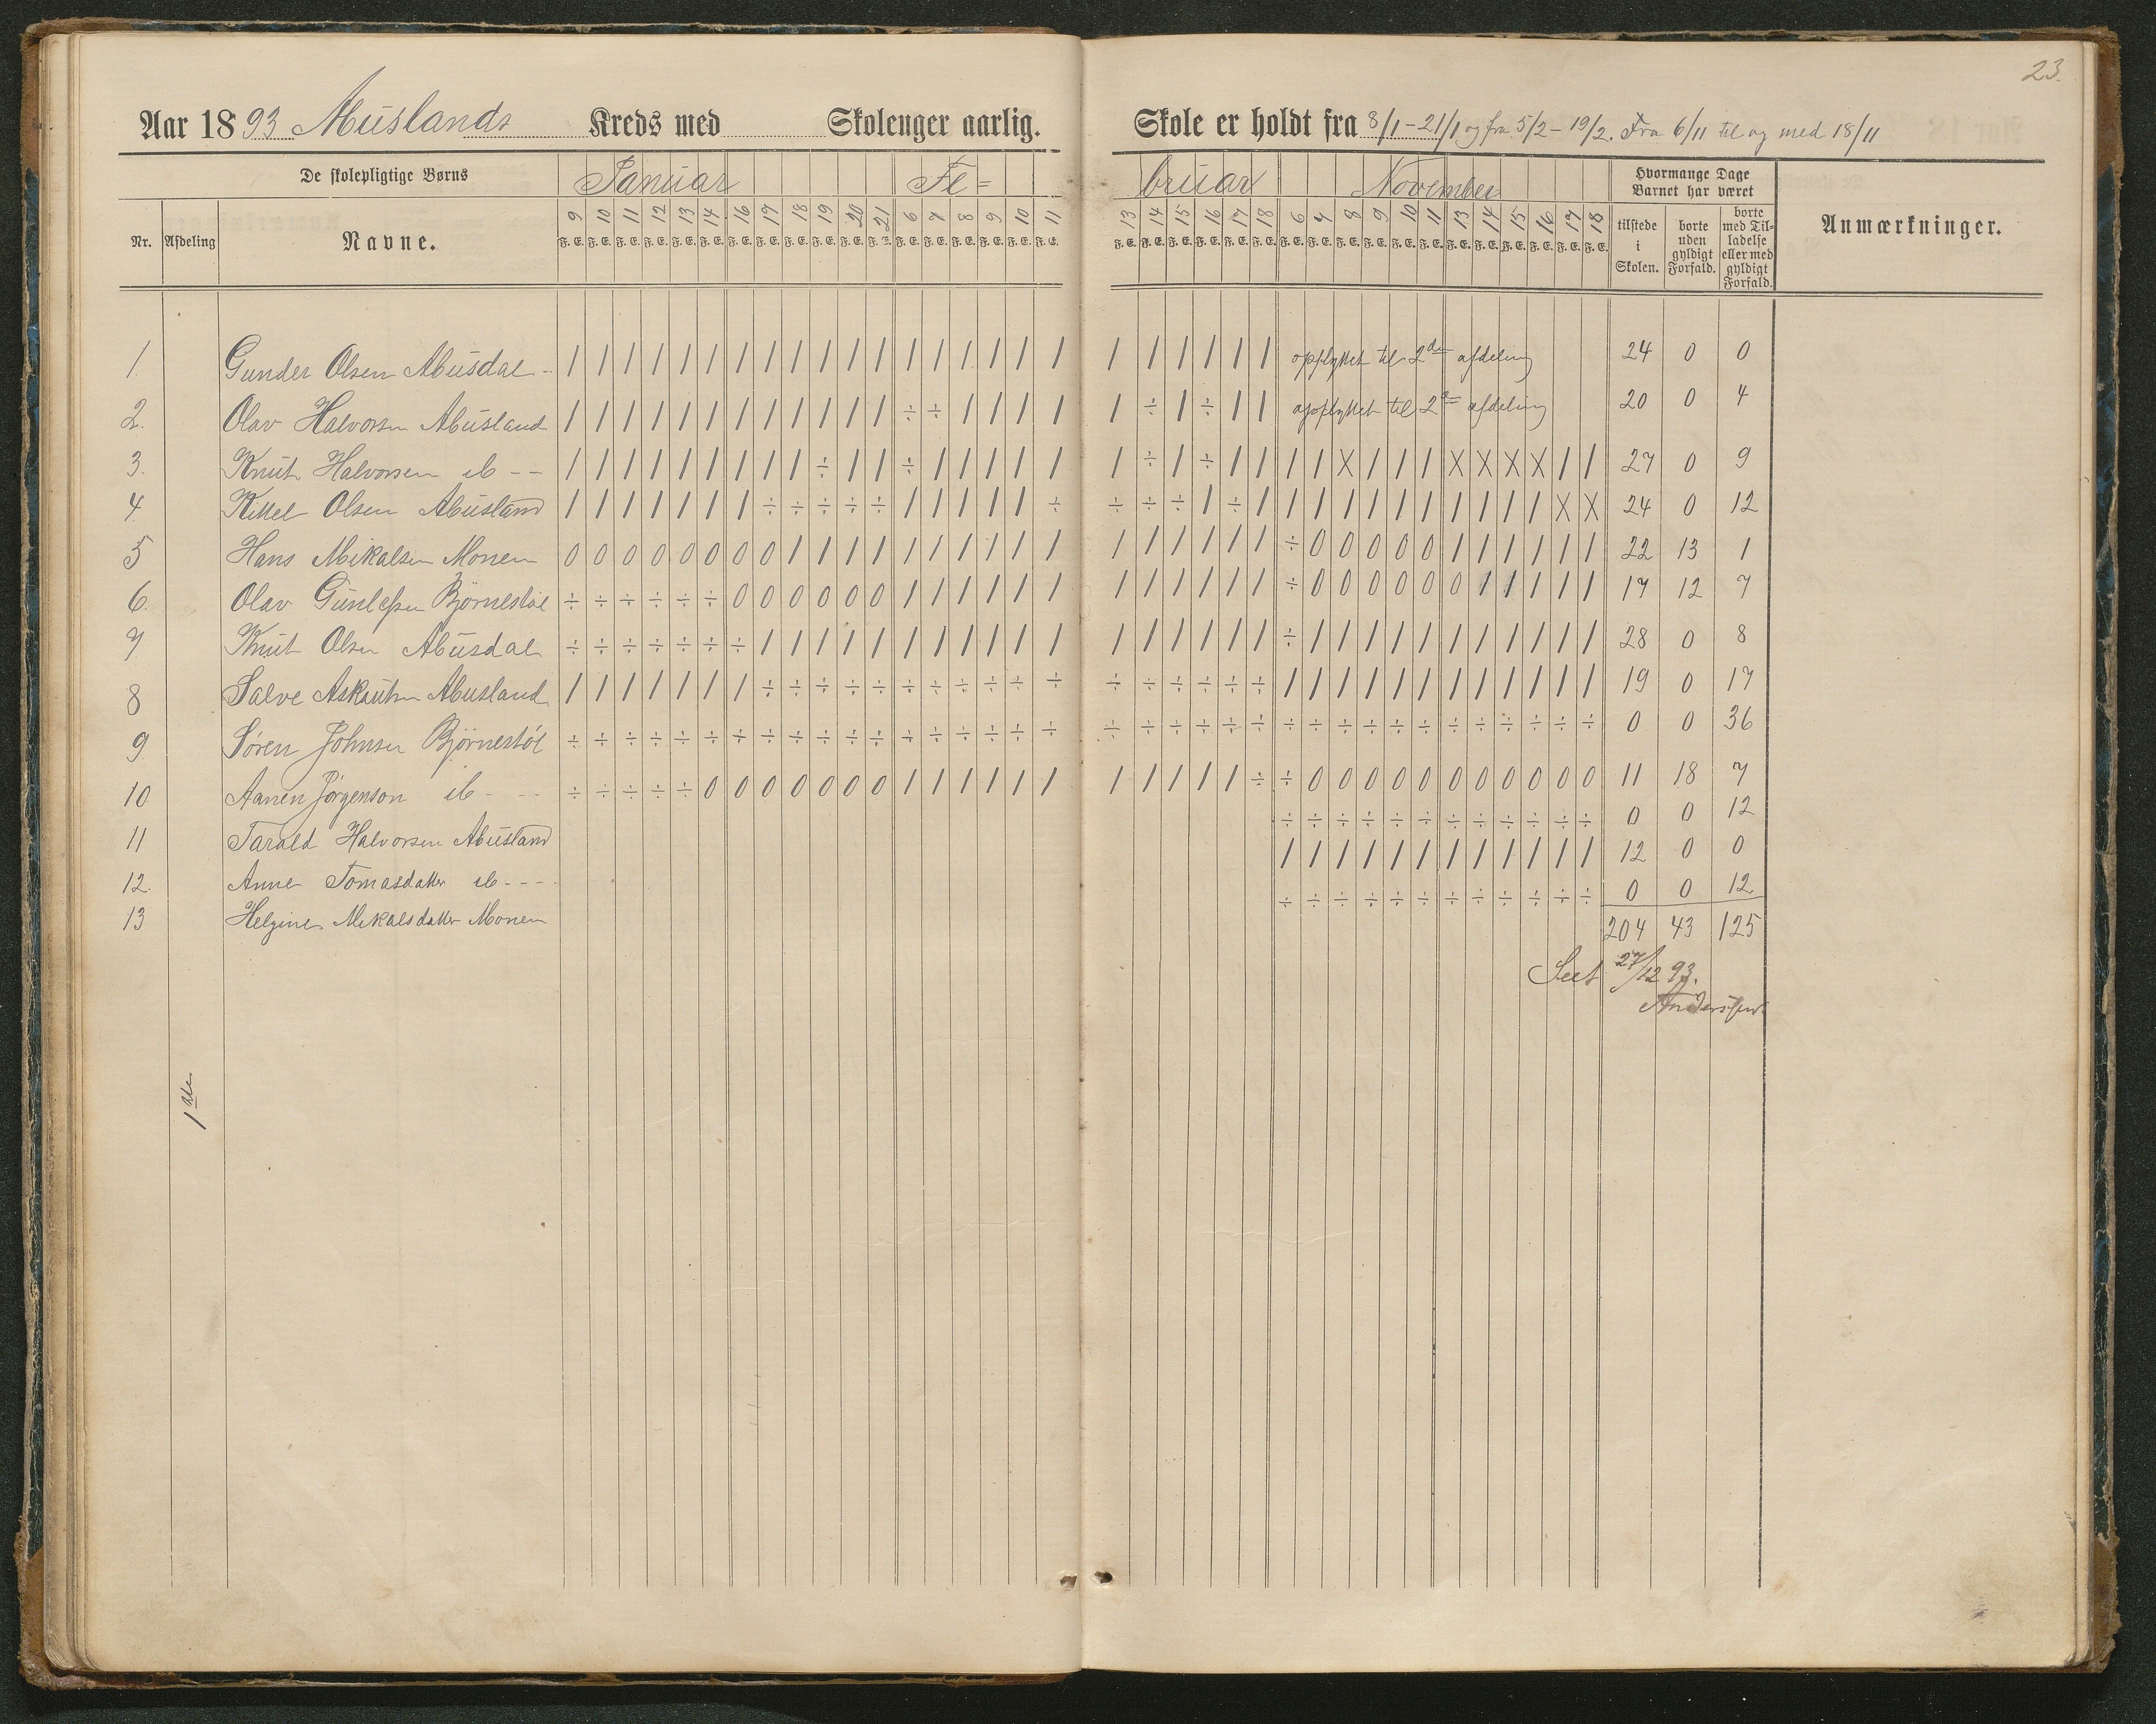 23.
Aar 1893 Abuslands Kreds med Skoleuger aarlig. Skole er holdt fra 8/1 - 21/1 og fra 5/2 - 19/2. Fra 6/11 til og med 18/11
De skolepligtige Børns Januar Fe= bruar November Hvormange Dage Barnet har været
Nr. Afdeling Navne. 9 10 11 12 13 14 16 17 18 19 20 21 6 7 8 9 10 11 13 14 15 16 17 18 6 7 8 9 10 11 13 14 15 16 17 18 tilstede i Skolen. borte uden gyldigt Forfald. borte med Tilladelse eller med gyldigt Forfald. Anmærkninger.
F. E. F. E. F. E. F. E. F. E. F. E. F. E. F. E. F. E. F. E. F. E. F. E. F. E. F. E. F. E. F. E. F. E. F. E. F. E. F. E. F. E. F. E. F. E. F. E. F. E. F. E. F. E. F. E. F. E. F. E. F. E. F. E. F. E. F. E. F. E. F. E.
1 Gunder Olsen Abusdal - / / / / / / / / / / / / / / / / / / / / / / / / opflyttet til 2den afdeling 24 0 0
2. Olav Halvorsen Abusland / / / / / / / / / / / / ÷ ÷ / / / / / ÷ / ÷ / / opflyttet til 2den afdeling 20 0 4
3. Knut Halvorsen ib - - / / / / / / / / / ÷ / / ÷ / / / / / / ÷ / ÷ / / / / X / / / X X X X / / 27 0 9
4. Kittel Olsen Abusland / / / / / / / ÷ ÷ ÷ ÷ ÷ / / / / / ÷ ÷ ÷ ÷ / ÷ / / / / / / / / / / / X X 24 0 12
5 Hans Mikalsen Monen 0 0 0 0 0 0 0 0 / / / / / / / / / / / / / / / / ÷ 0 0 0 0 0 / / / / / / 22 13 1
6. Olav Gunlefsen Bjørnestøl ÷ ÷ ÷ ÷ ÷ ÷ 0 0 0 0 0 0 / / / / / / / / / / / / ÷ 0 0 0 0 0 0 / / / / / 17 12 7
7. Knut Olsen Abusdal ÷ ÷ ÷ ÷ ÷ ÷ ÷ / / / / / / / / / / / / / / / / / ÷ / / / / / / / / / / / 28 0 8
8 Salve Askautsen Abusland / / / / / / / ÷ ÷ ÷ ÷ ÷ ÷ ÷ ÷ ÷ ÷ ÷ ÷ ÷ ÷ ÷ ÷ ÷ / / / / / / / / / / / / 19 0 17
9 Søren Johnsen Bjørnestøl ÷ ÷ ÷ ÷ ÷ ÷ ÷ ÷ ÷ ÷ ÷ ÷ ÷ ÷ ÷ ÷ ÷ ÷ ÷ ÷ ÷ ÷ ÷ ÷ ÷ ÷ ÷ ÷ ÷ ÷ ÷ ÷ ÷ ÷ ÷ ÷ 0 0 36
10 Aanen Jørgenson ib - - - ÷ ÷ ÷ ÷ ÷ 0 0 0 0 0 0 0 / / / / / / / / / / / ÷ ÷ 0 0 0 0 0 0 0 0 0 0 0 11 18 7
11 Tarald Halvorsen Abusland ÷ ÷ ÷ ÷ ÷ ÷ ÷ ÷ ÷ ÷ ÷ ÷ 0 0 12
12. Anne Tomasdatter ib - - - / / / / / / / / / / / / 12 0 0
13 Helgine Mikalsdatter Monen ÷ ÷ ÷ ÷ ÷ ÷ ÷ ÷ ÷ ÷ ÷ ÷ 0 0 12
204 43 125
Seet 27/12 93.
Anderssen
1ste